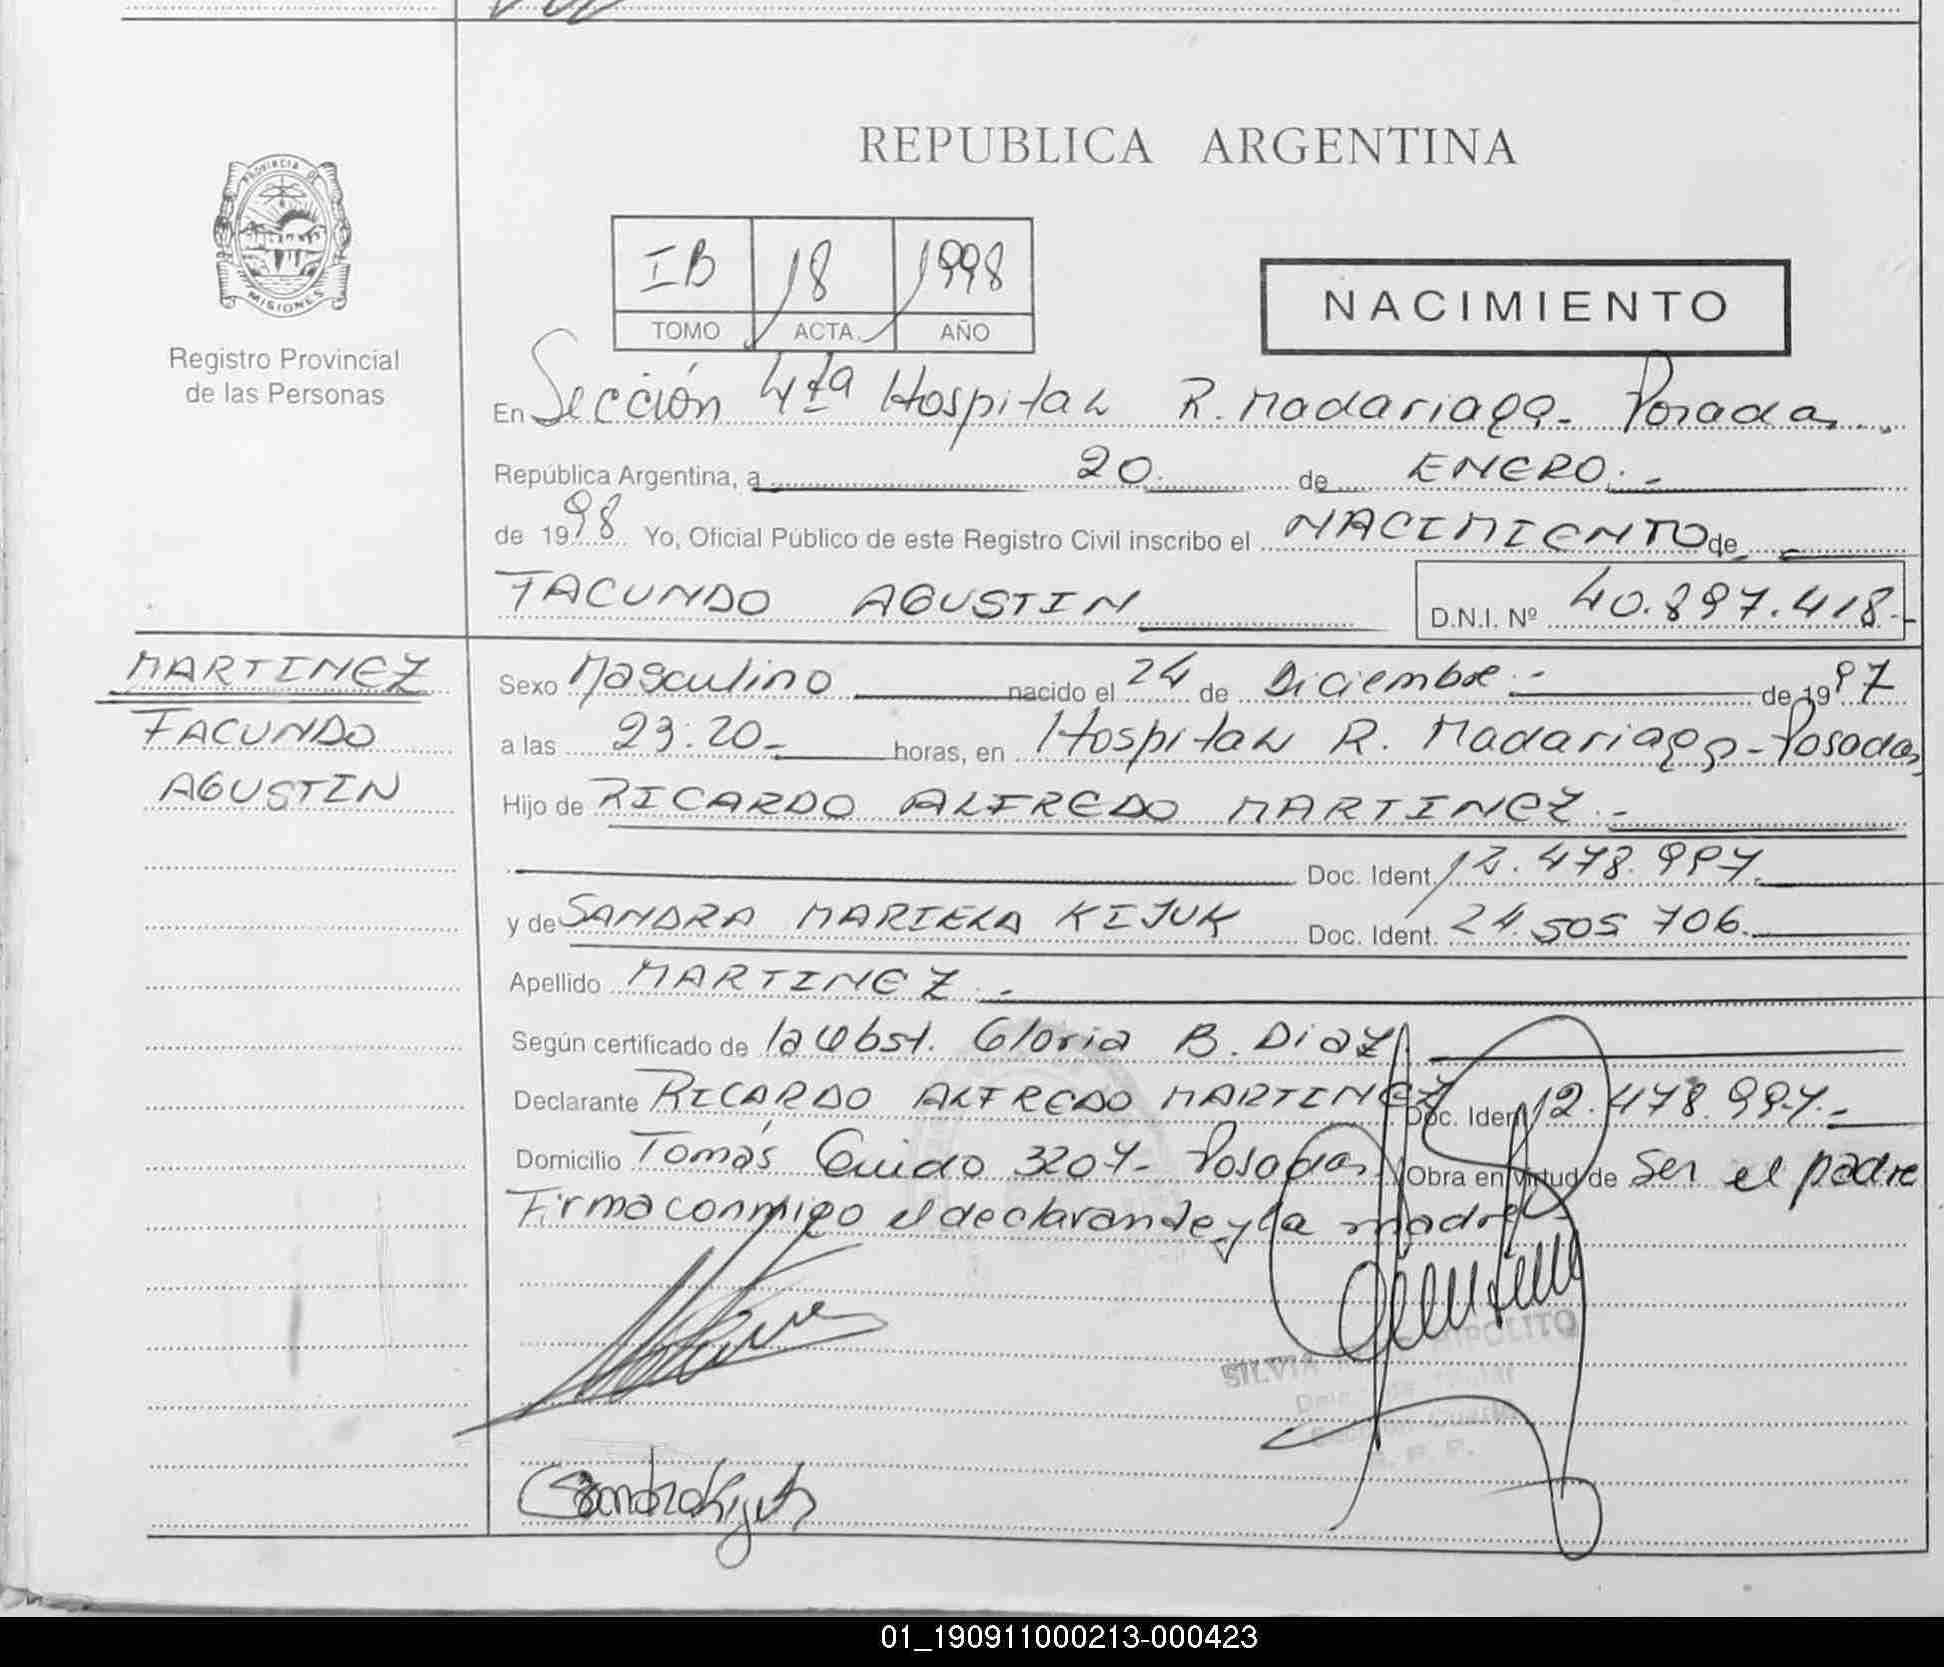 REPUBLICA ARGENTINA
PROVINCIA DE
MISIONES
Registro Provincial
de las Personas
IB 18 1998
TOMO ACTA AÑO
NACIMIENTO
En Sección 4ta Hospital R. Madariaga - Posadas
República Argentina, a 20 de ENERO.-
de 1998 Yo, Oficial Público de este Registro Civil inscribo el NACIMIENTO de
FACUNDO AGUSTIN D.N.I. Nº 40.897.418.-
MARTINEZ
FACUNDO
AGUSTIN
Sexo Masculino nacido el 24 de Diciembre.- de 1997
a las 23:20.- horas, en Hospital R. Madariaga - Posadas
Hijo de RICARDO ALFREDO MARTINEZ.-
Doc. Ident. 12.478.997.
y de SANDRA MARIELA KIJUK Doc. Ident. 24.505 706.
Apellido MARTINEZ.-
Según certificado de la Obst. Gloria B. Diaz
Declarante RICARDO ALFREDO MARTINEZ Doc. Ident 12.478.997.-
Domicilio Tomás Guido 3207- Posadas Obra en virtud de Ser el padre
Firma conmigo el declarante y la madre
SILVIA HIPOLITO
Sandra Kijuk
01_190911000213-000423